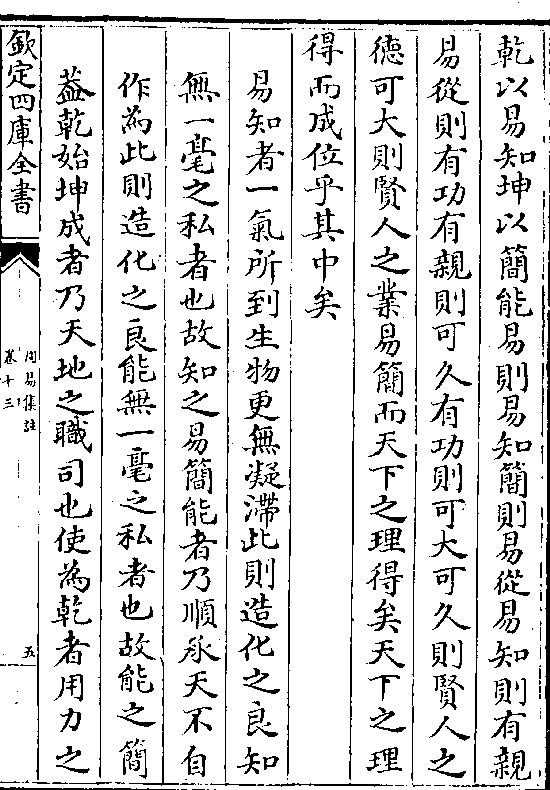 乾以易知坤以簡能易則易知簡則易從易知則有親
易從則有功有親則可久有功則可大可久則賢人之
德可大則賢人之業易簡而天下之理得矣天下之理
得而成位乎其中矣
易知者一氣所到生物更無凝滯此則造化之良知
無一毫之私者也故知之易簡能者乃順承天不自
作為此則造化之良能無一毫之私者也故能之簡
葢乾始坤成者乃天地之職司也使為乾者用力之
欽定四庫全書
周易集註
卷十三
五